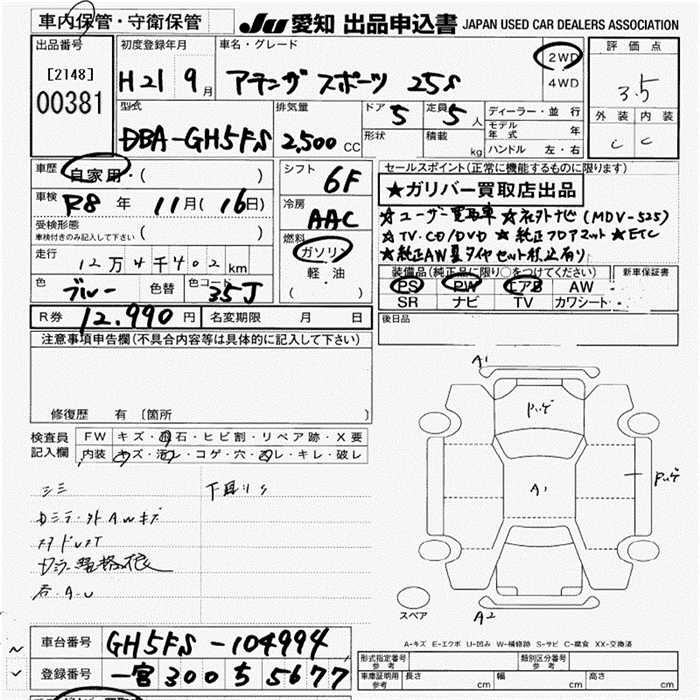 車内保管・守衛保管
JU 愛知 出品申込書 JAPAN USED CAR DEALERS ASSOCIATION
出品番号 [2148] 00381
初度登録年月 H21 9月
車名・グレード アテンザ スポーツ 25S
2WD 4WD
評価点 3.5
外装 C 内装 C
型式 DBA-GH5FS
排気量 2,500 CC
ドア 5 定員 5人
形状 積載 kg
ディーラー・並行
モデル年式 年
ハンドル 左・右
車歴 自家用・( )
車検 R8年 11月(16日)
受検形態 車検付きのみ記入して下さい ( )
走行 12万4千402km
色 ブルー 色替 色コード 35J
シフト 6F
冷房 AAC
燃料 ガソリン 軽・油 ( )
セールスポイント(正常に機能するものに限ります)
★ガリバー買取店出品
★ユーザー買取車 ★社外ナビ(MDV-525)
★TV.CD/DVD ★純正フロアマット ★ETC
★純正AW夏タイヤセット積込有り
装備品(純正品に限り○をつけてください) 新車保証書
PS PW エアB AW・
SR ナビ TV カワシート・
R券 12,990円 名変期限 月 日
後日品
注意事項申告欄(不具合内容等は具体的に記入して下さい)
修復歴 有 [箇所 ]
検査員記入欄
FW キズ・飛石・ヒビ割・リペア跡・X要
内装 キズ・汚レ・コゲ・穴・スレ・キレ・破レ
下廻りS
A1
A1
A2
スペア
A-キズ E-エクボ U-凹み W-補修跡 S-サビ C-腐食 XX-交換済
車台番号 GH5FS-104994
登録番号 一宮300ち5677
形式指定番号 参考 類別区分番号 参考
車庫証明用 参考 長さ cm 幅 cm 高さ cm